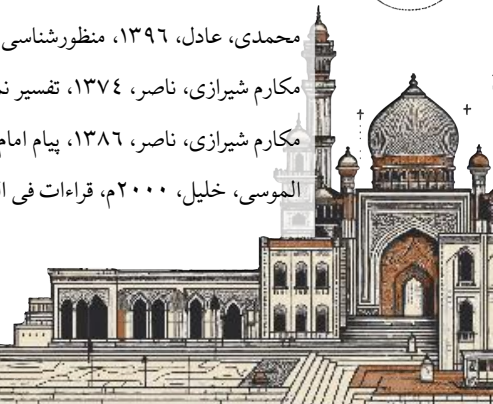 محمدی، عادل، ۱۳۹٦، منظورشناسی
مکارم شیرازی، ناصر، ۱۳۷٤، تفسیر
مکارم شیرازی، ناصر، ۱۳۸٦، پیام امام
الموسی، خلیل، ۲۰۰۰م، قراءات فی